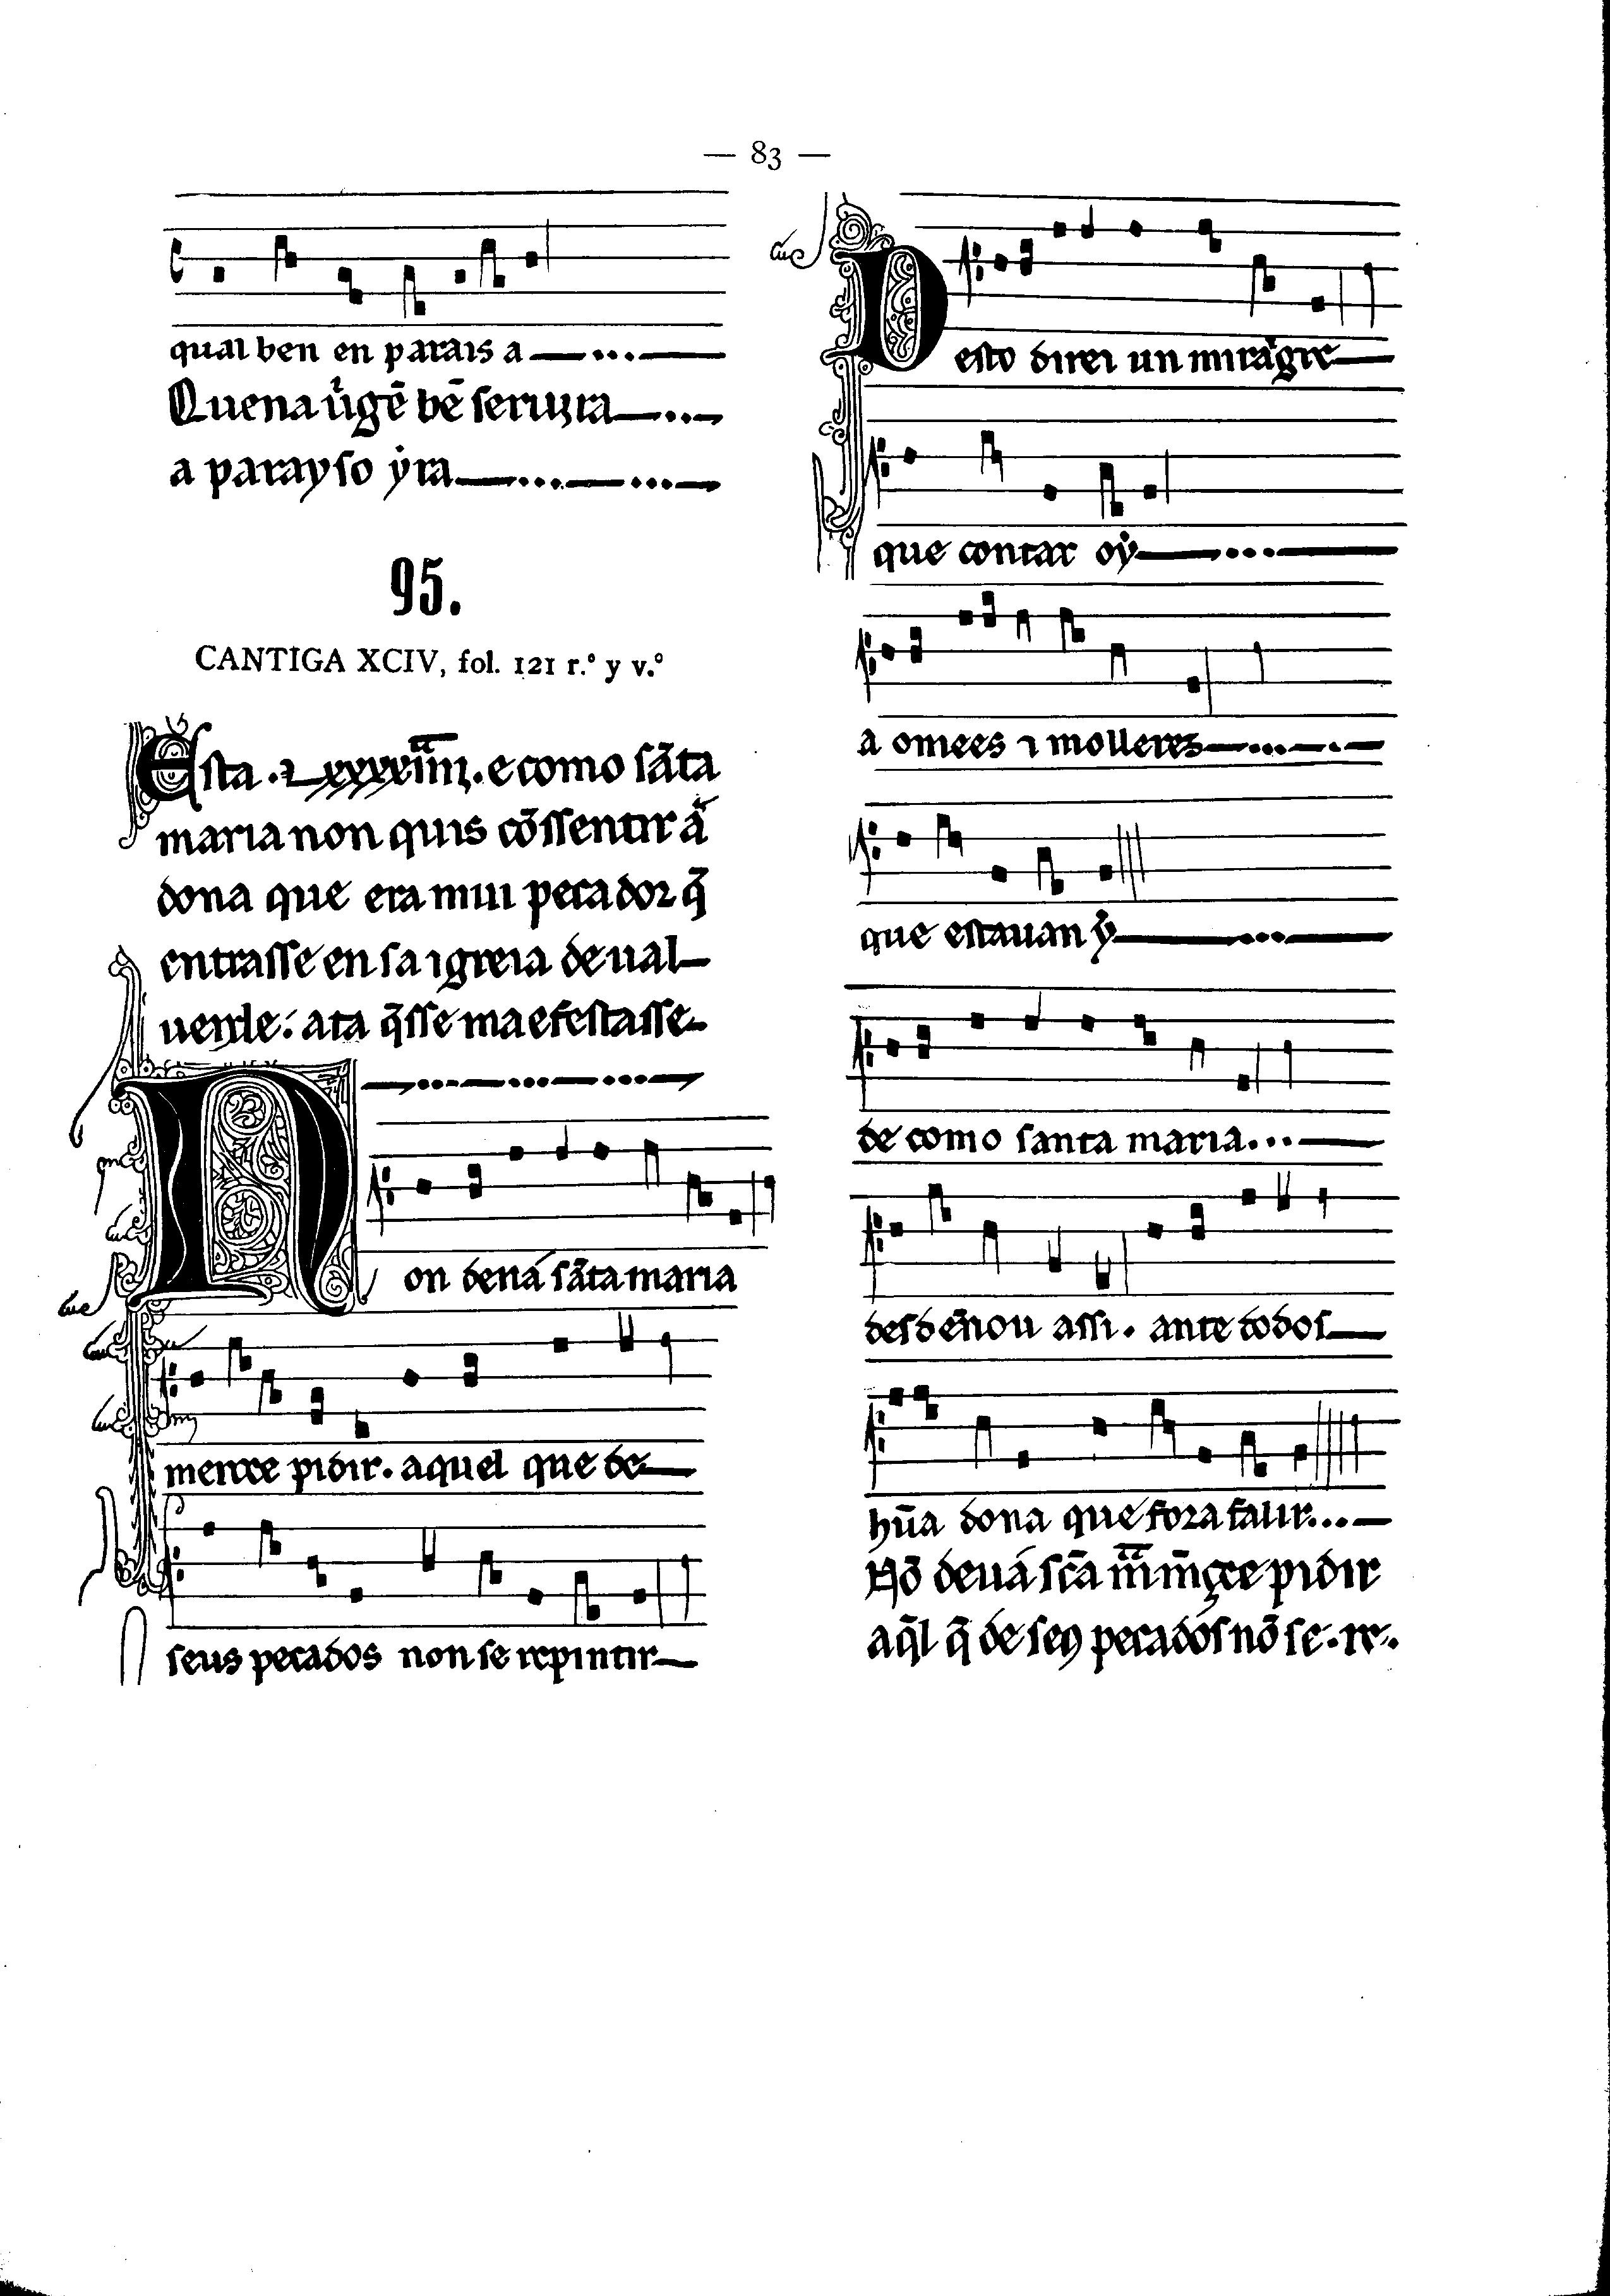 — 83 —
qual ben en parais a
Quena ũgẽ bẽ seruira
a parayso yra
95.
CANTIGA XCIV, fol. 121 r.º y v.º
Esta · Lxxxxiiij · e como sãta
maria non quis cõssentir á
dona que era mui pecador q̃
entrasse en sa igreia de ual
uerde: ata q̃sse maefestasse
Non deuá sãta maria
merçee pidir · aquel que de
seus pecados non se repintir
Desto direi un miragre
que contar oý
a omees ⁊ molleres
que estauan ý
de como santa maria
desdẽnou assi · ante todos
hũa dona que fora falir
Nõ deuá sc̃a m̃ m̃çee pidir
aq̃l q̃ de seꝯ pecados nõ se · re